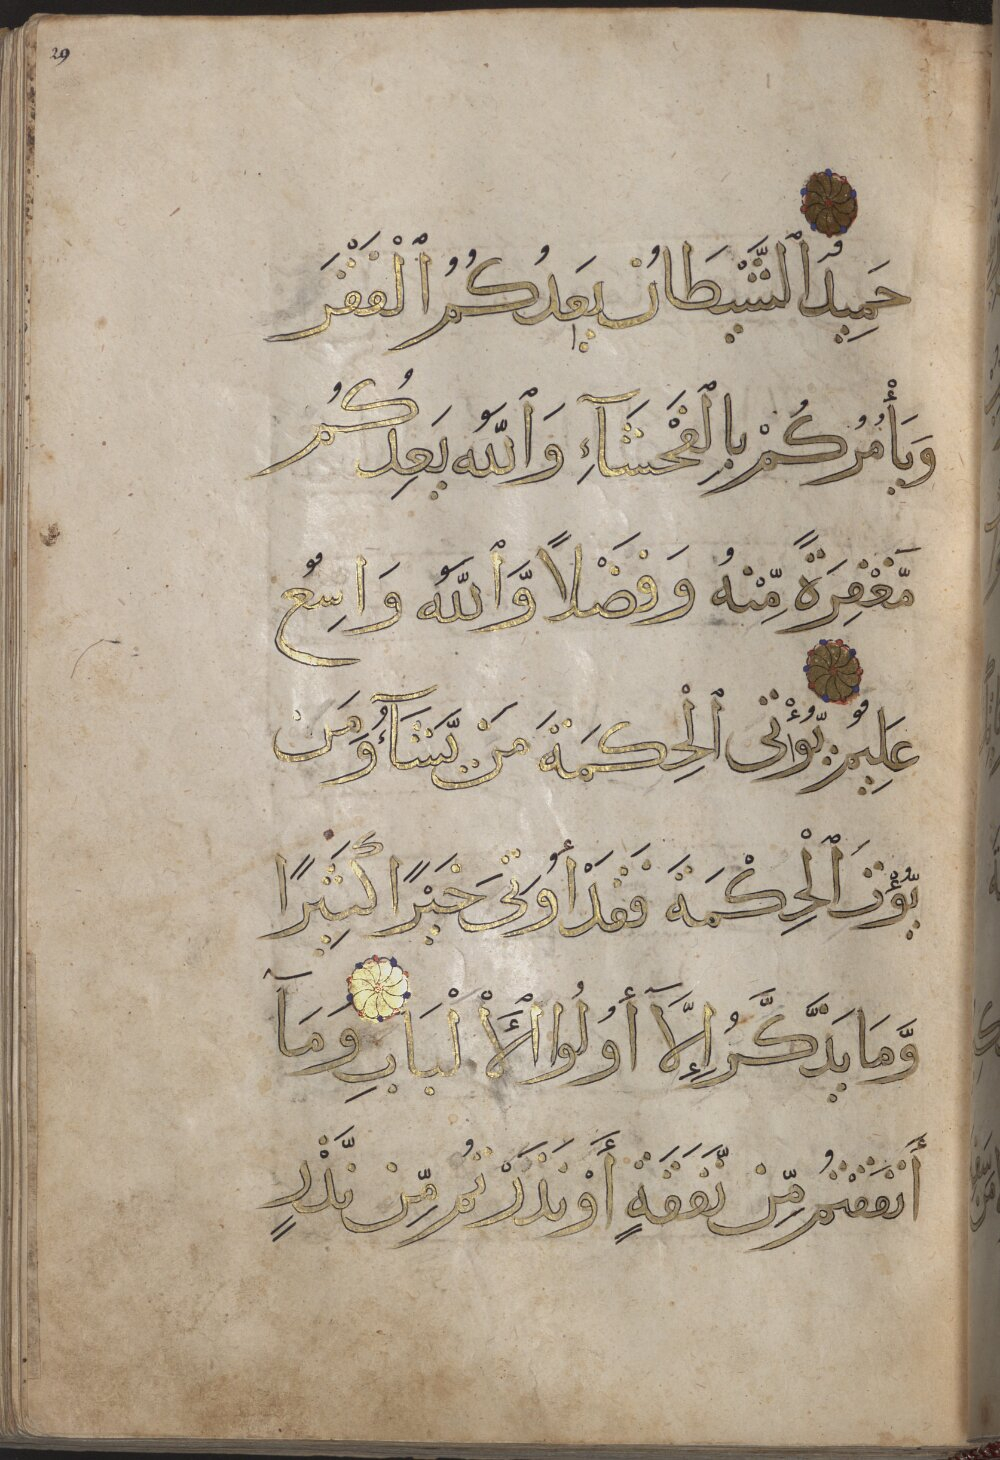 29
حَمِيدٌ ٱلشَّيْطَانُ يَعِدُكُمُ ٱلْفَقْرَ
وَيَأْمُرُكُمْ بِٱلْفَحْشَآءِ وَٱللَّهُ يَعِدُكُمْ
مَّغْفِرَةً مِّنْهُ وَفَضْلًا وَٱللَّهُ وَاسِعٌ
عَلِيمٌ يُؤْتِى ٱلْحِكْمَةَ مَنْ يَّشَآءُ وَمَن
يُؤْتَ ٱلْحِكْمَةَ فَقَدْ أُوتِىَ خَيْرًا كَثِيرًا
وَّمَا يَذَّكَّرُ إِلَّآ أُولُوا ٱلْأَلْبَابِ وَمَآ
أَنفَقْتُم مِّن نَّفَقَةٍ أَوْ نَذَرْتُم مِّن نَّذْرٍ